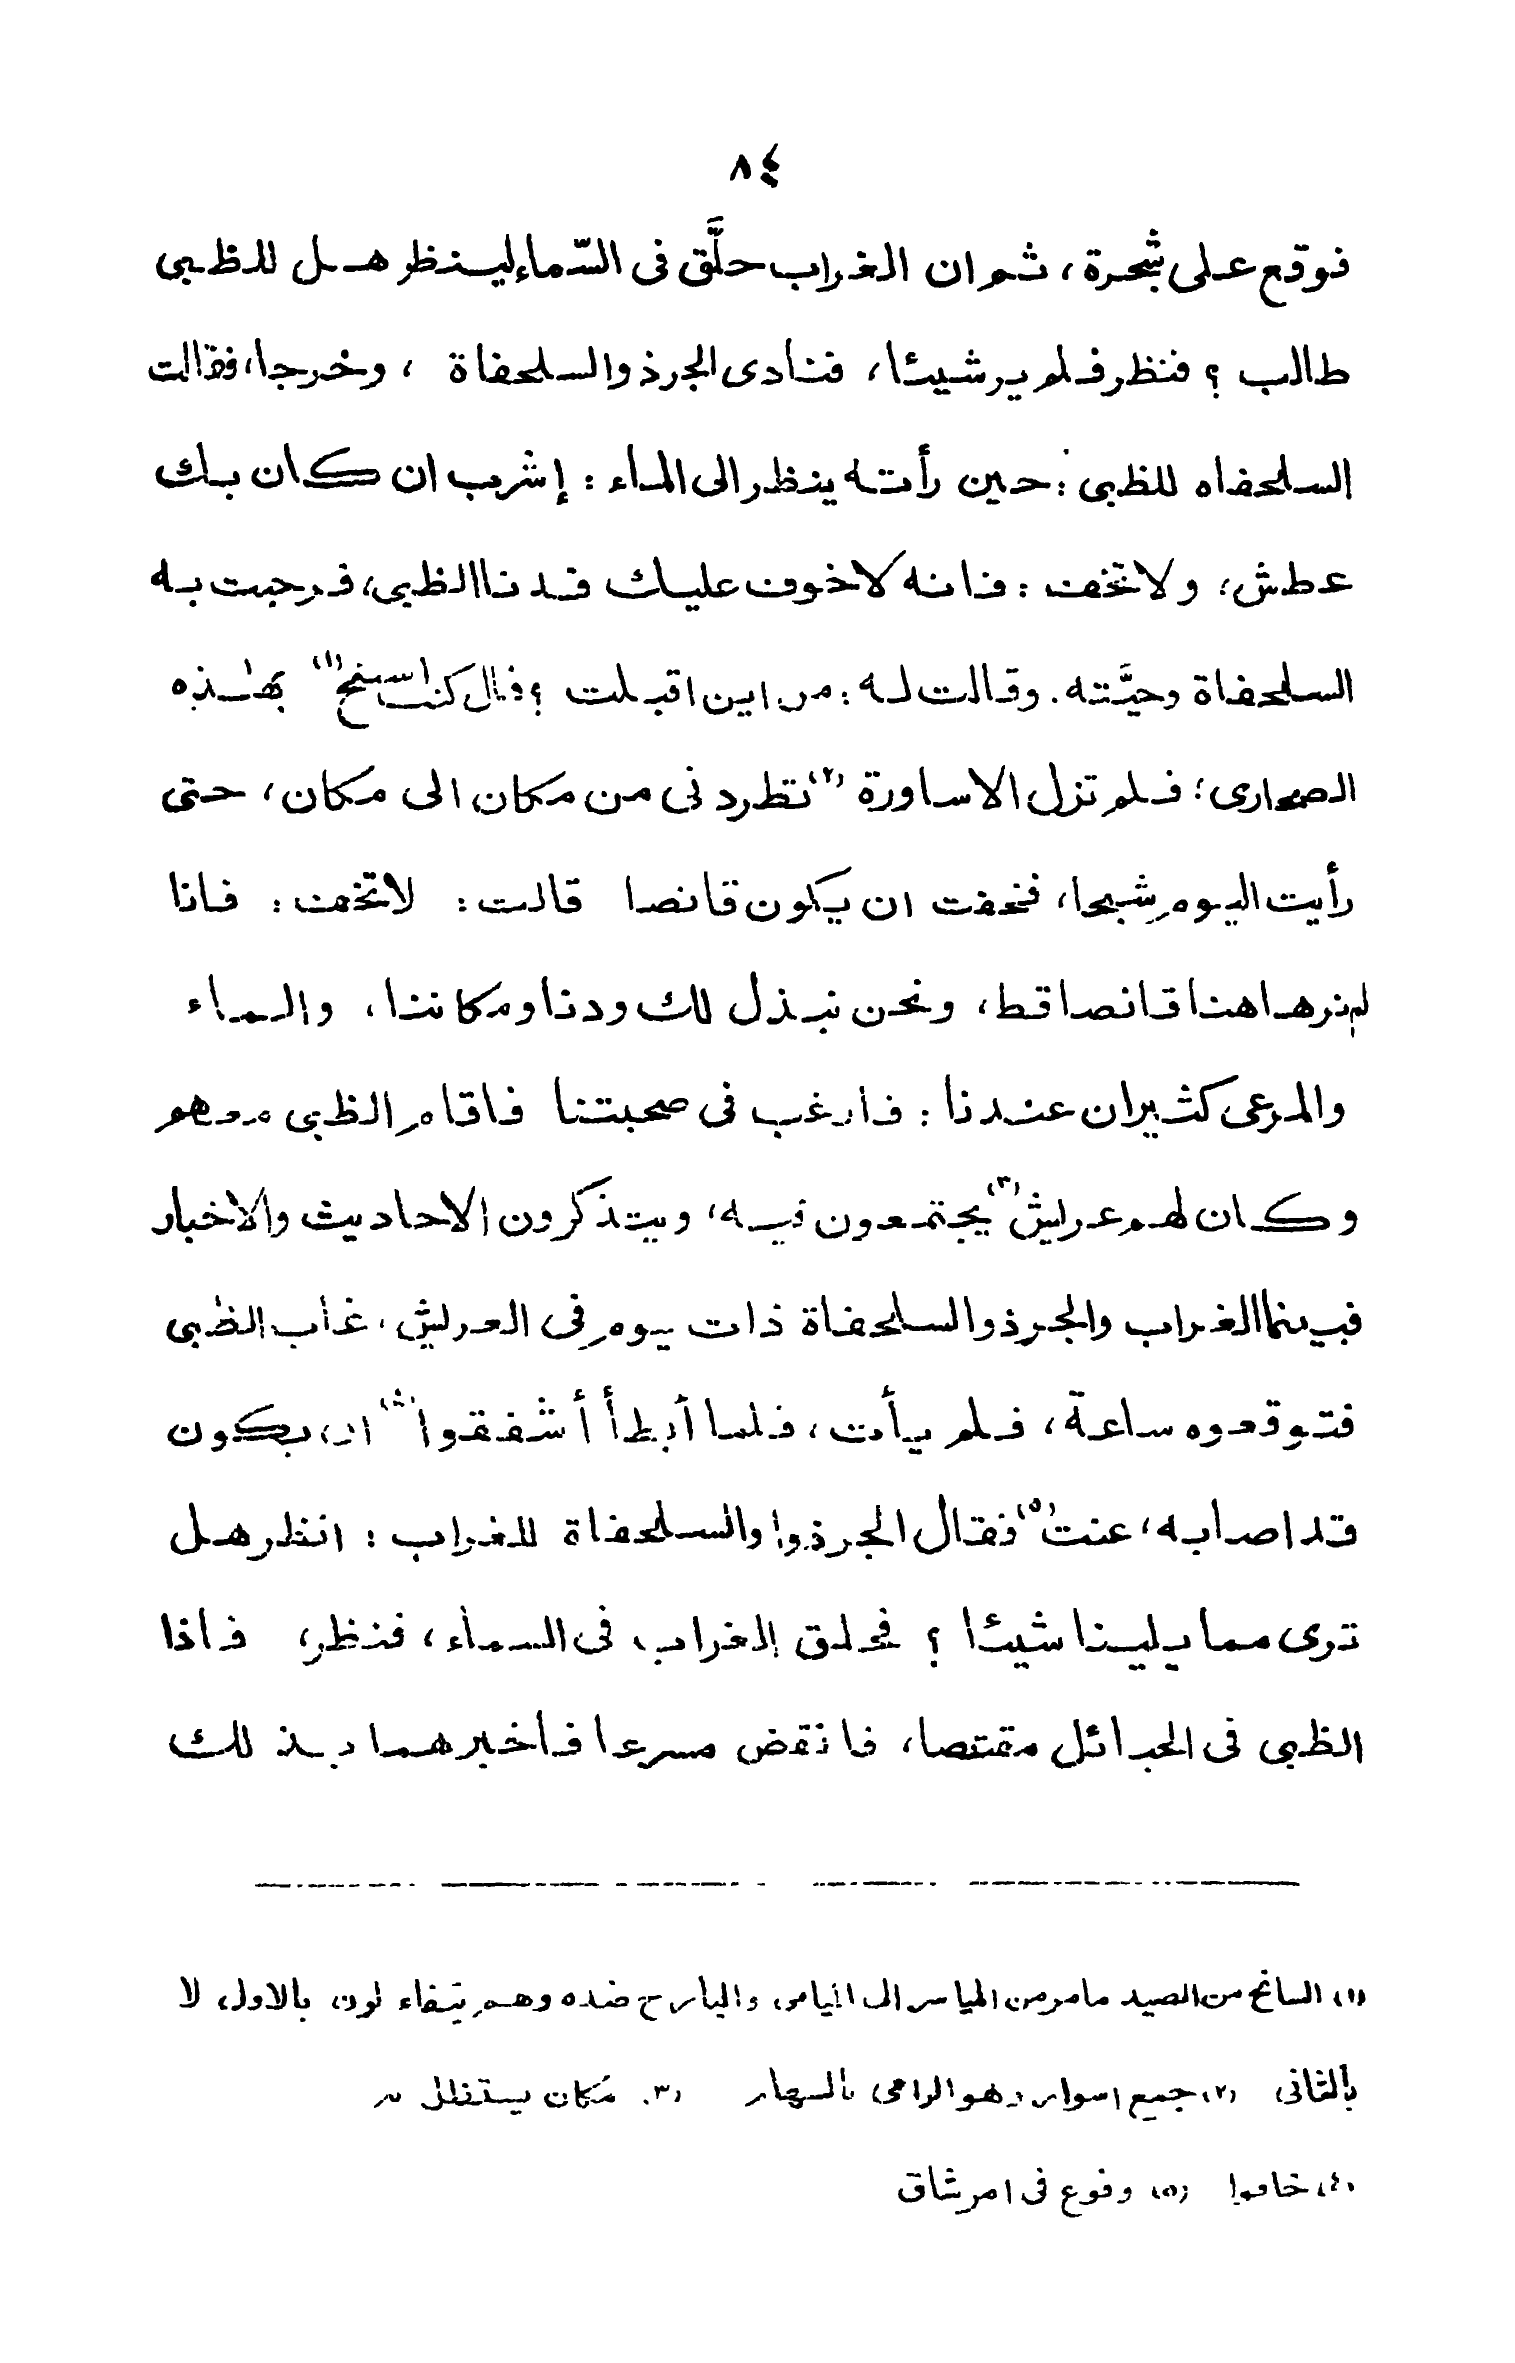 ٨٤
فوقع على شجرة، ثم ان الغراب حلَّق فى السّماء لينظر هل للظبى
طالب ؟ فنظر فلم ير شيئا، فنادى الجرذ والسلحفاة ، وخرجا، فقالت
السلحفاه للظبى : حين رأته ينظر الى الماء : إشرب ان كان بك
عطش، ولا تخف : فانه لا خوف عليك فدنا الظبى، فرحبت به
السلحفاة وحيَّته. وقالت له : من اين اقبلت ؟ قال كنت اسنح (١) بهذه
الصحارى؛ فلم تزل الاساورة (٢) تطردنى من مكان الى مكان، حتى
رأيت اليوم شبحا، فخفت ان يكون قانصا قالت: لا تخف: فانا
لم نر هاهنا قانصا قط، ونحن نبذل لك ودنا ومكاننا، والماء
والمرعى كثيران عندنا : فارغب فى صحبتنا فاقام الظبى معهم
وكان لهم عريش (٣) يجتمعون فيه، ويتذكرون الاحاديث والاخبار
فبينما الغراب والجرذ والسلحفاة ذات يوم فى العريش، غاب الظبى
فتوقعوه ساعة، فلم يأت، فلما أبطأ أشفقوا (٤) ان يكون
قد اصابه، عنت (٥) فقال الجرذوا والسلحفاة للغراب : انظر هل
ترى مما يلينا شيئا ؟ فحلق الغراب فى السماء، فنظر، فاذا
الظبى فى الحبائل مقتنصا، فانقض مسرعا فاخبرهما بذلك
(١) السانح من الصيد ما مر من المياسر الى الميامن والبارح ضده وهم يتفاء لون بالاول لا
بالثانى (٢) جمع اسوار وهو الرامى بالسهام (٣) مكان يستظل به
(٤) خافوا (٥) وقوع فى امر شاق